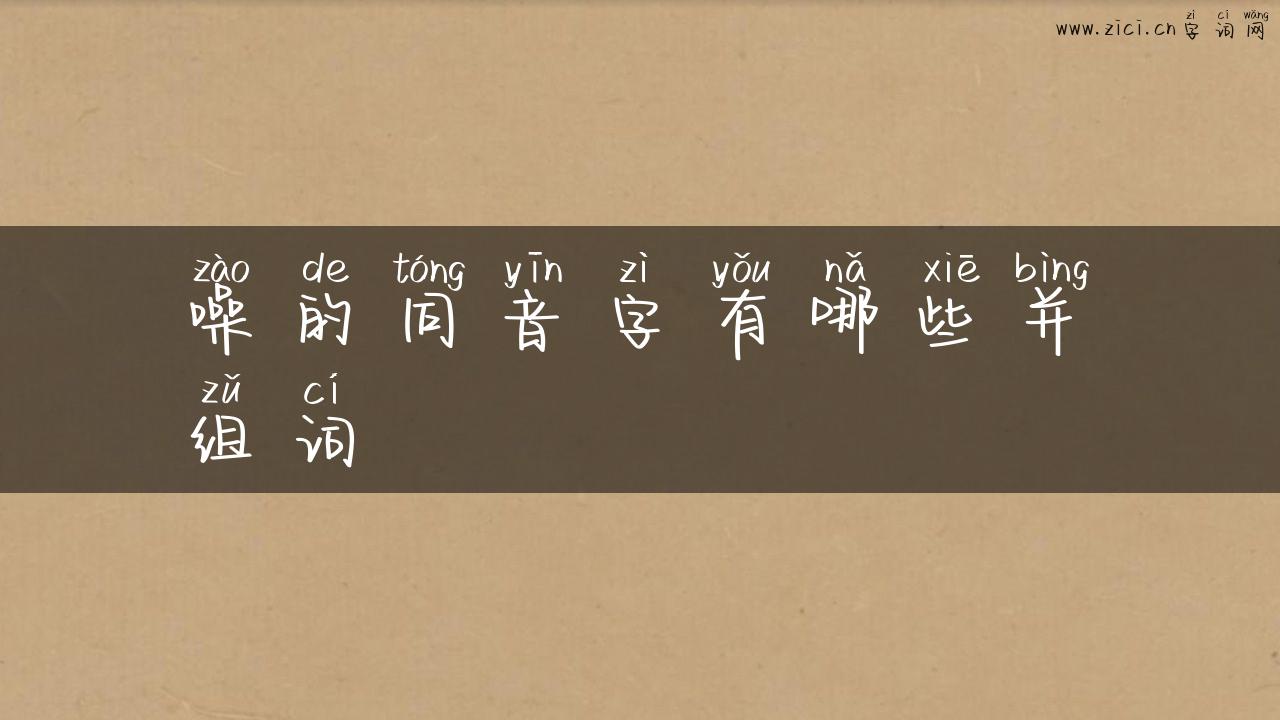 zì cí wǎng
www.zici.cn 字词网
zào de tóng yīn zì yǒu nǎ xiē bìng
噪的同音字有哪些并
zǔ cí
组词